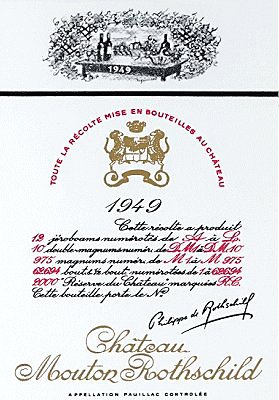 1949
TOUTE LA RÉCOLTE MISE EN BOUTEILLES AU CHÂTEAU
1949
Cette récolte a produit
12 jéroboams numérotés de A à L
10 double-magnums num. de D.M1 à D.M 10
975 magnums numér. de M 1 à M 975
62694 bout. & ½ bout. numérotées de 1 à 62694
2000 "Réserve du Château" marquées R.C.
Cette bouteille porte le No
Philippe de Rothschild
Château
Mouton Rothschild
APPELLATION PAUILLAC CONTRÔLÉE